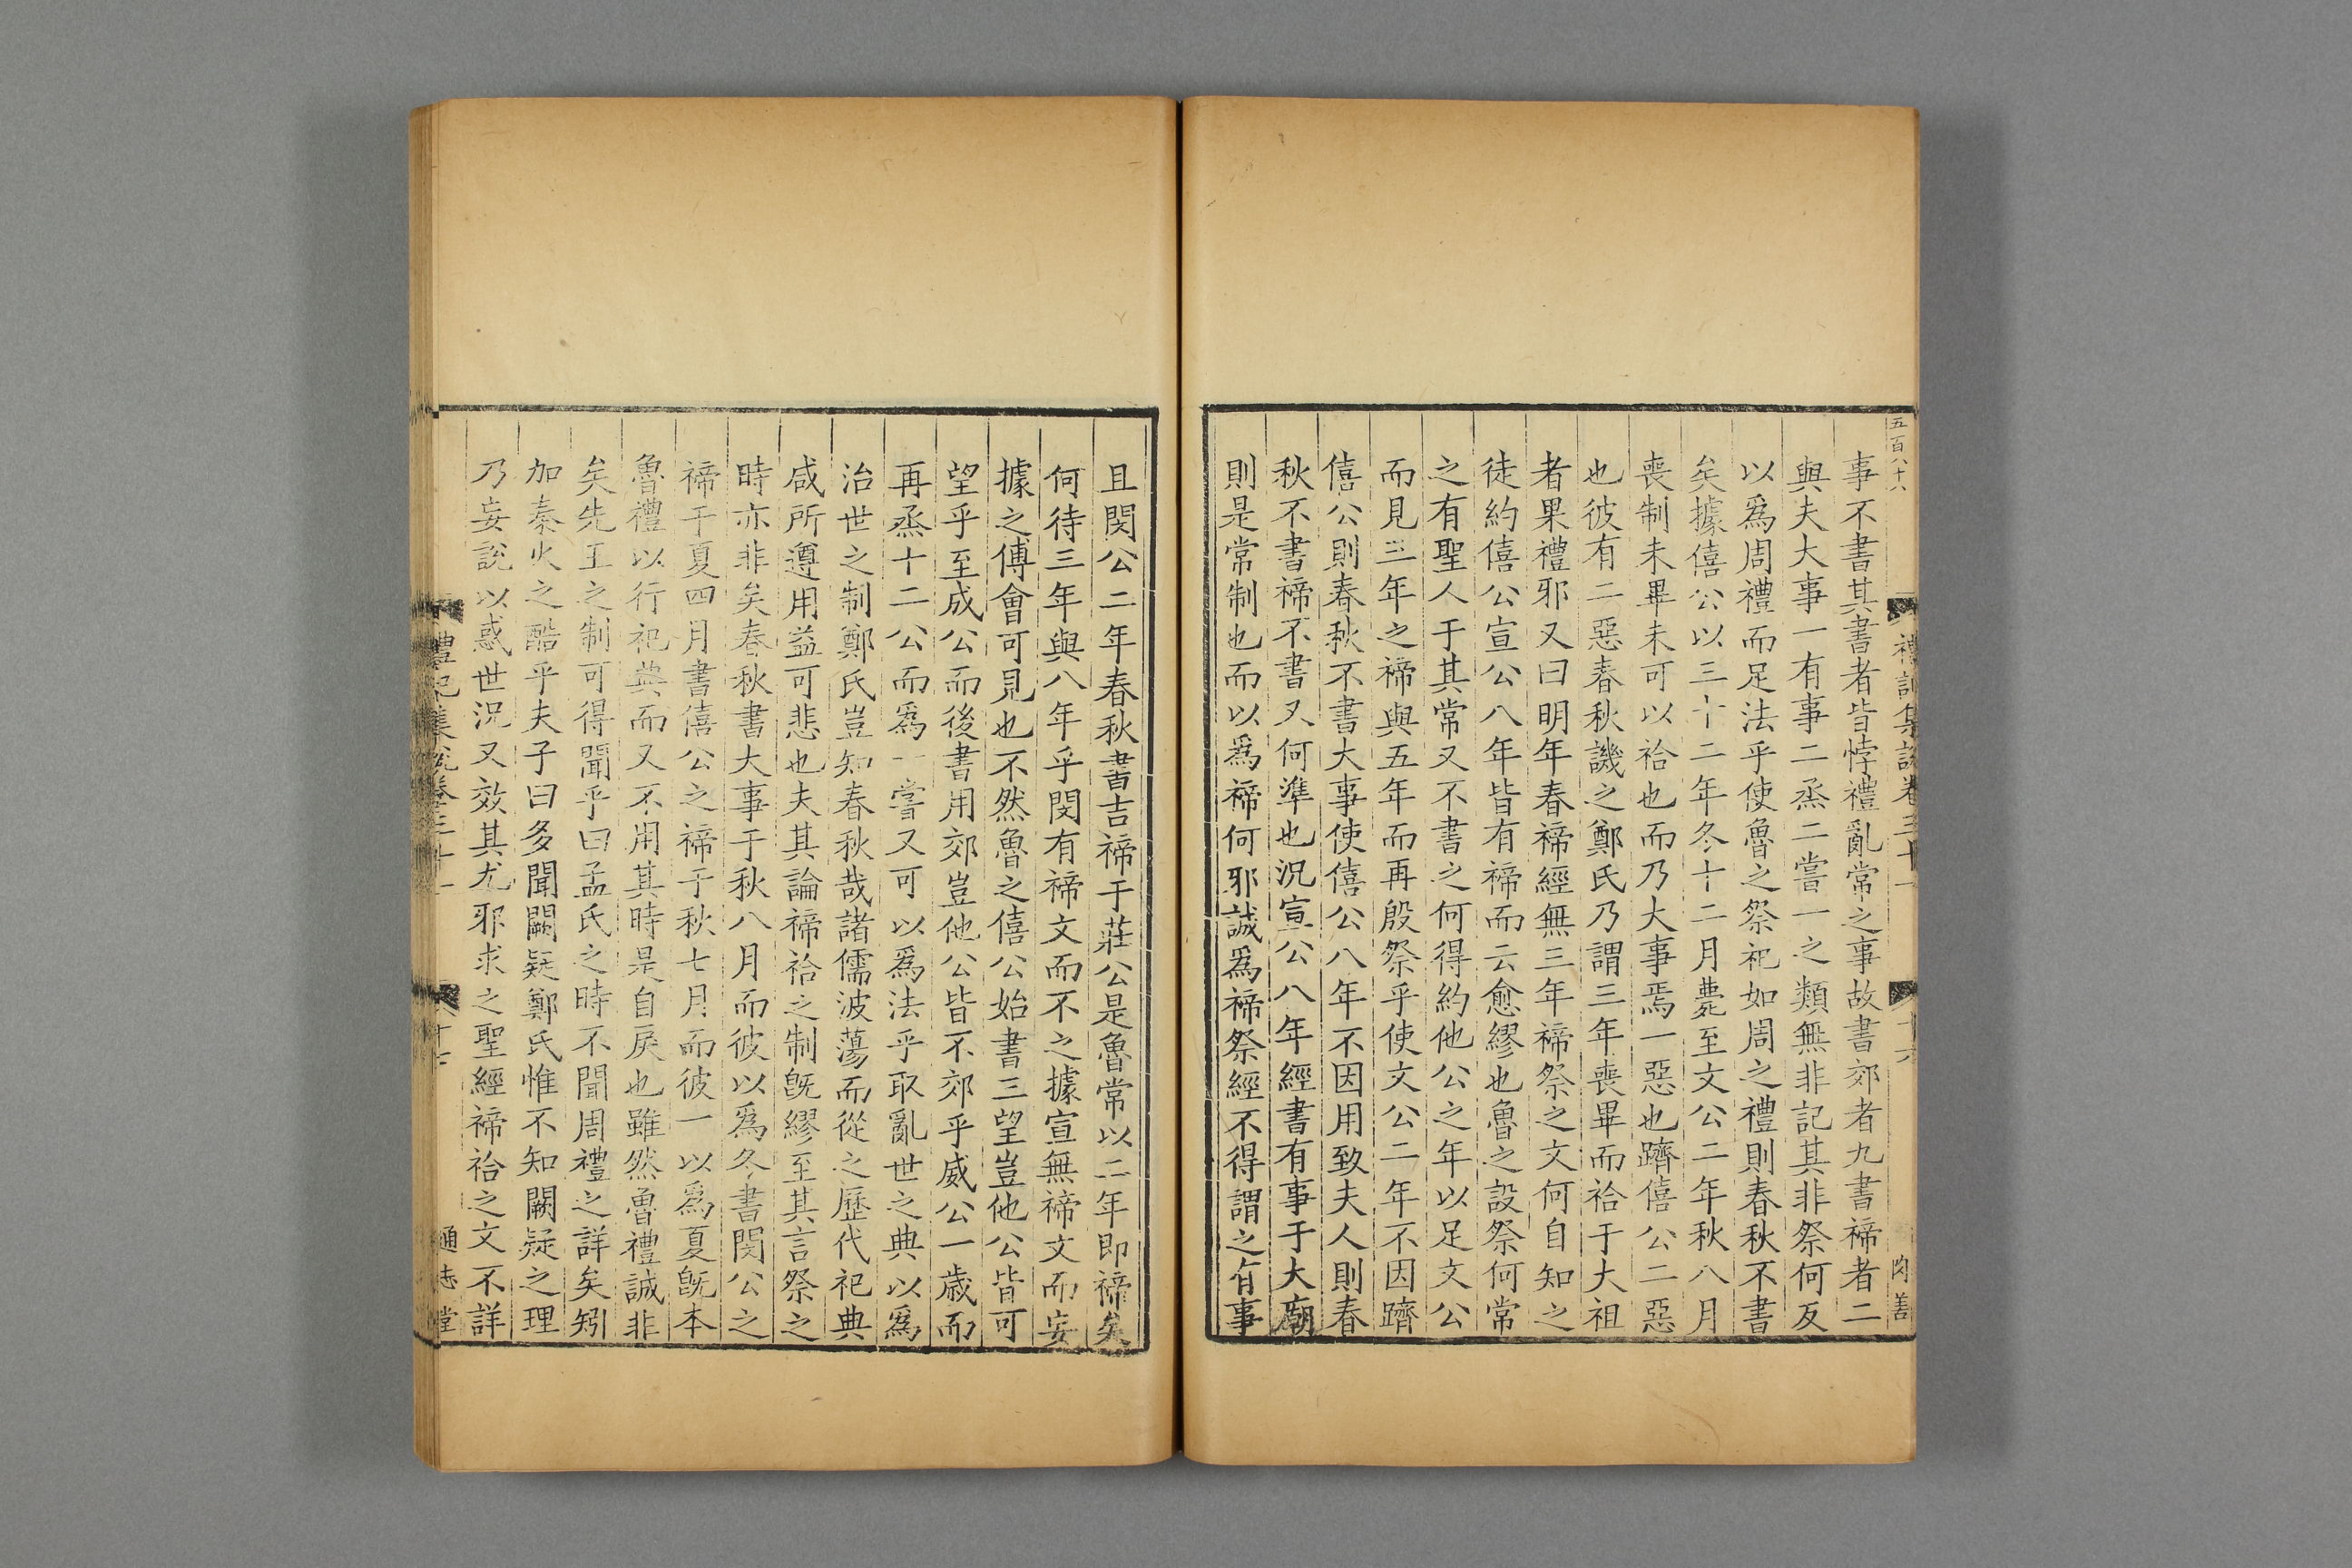 五百八十八
禮記集說卷三十一
十六
肉善
事不書其書者皆悖禮亂常之事故書郊者九書禘者二
與夫大事一有事二烝二嘗一之類無非記其非祭何反
以爲周禮而足法乎使魯之祭祀如周之禮則春秋不書
矣據僖公以三十二年冬十二月薨至文公二年秋八月
喪制未畢未可以祫也而乃大事焉一惡也躋僖公二惡
也彼有二惡春秋譏之鄭氏乃謂三年喪畢而祫于大祖
者果禮邪又曰明年春禘經無三年禘祭之文何自知之
徒約僖公宣公八年皆有禘而云愈繆也魯之設祭何常
之有聖人于其常又不書之何得約他公之年以足文公
而見三年之禘與五年而再殷祭乎使文公二年不因躋
僖公則春秋不書大事使僖公八年不因用致夫人則春
秋不書禘不書又何準也況宣公八年經書有事于大廟
則是常制也而以爲禘何邪誠爲禘祭經不得謂之有事
且閔公二年春秋書吉禘于莊公是魯常以二年即禘矣
何待三年與八年乎閔有禘文而不之據宣無禘文而妄
據之傅會可見也不然魯之僖公始書三望豈他公皆可
望乎至成公而後書用郊豈他公皆不郊乎威公一歲而
再烝十二公而爲一嘗又可以爲法乎取亂世之典以爲
治世之制鄭氏豈知春秋哉諸儒波蕩而從之歷代祀典
咸所遵用益可悲也夫其論禘祫之制旣繆至其言祭之
時亦非矣春秋書大事于秋八月而彼以爲冬書閔公之
禘于夏四月書僖公之禘于秋七月而彼一以爲夏旣本
魯禮以行祀典而又不用其時是自戾也雖然魯禮誠非
矣先王之制可得聞乎曰孟氏之時不聞周禮之詳矣矧
加秦火之酷乎夫子曰多聞闕疑鄭氏惟不知闕疑之理
乃妄說以惑世況又效其尤邪求之聖經禘祫之文不詳
禮記集說卷三十一
十七
通志堂